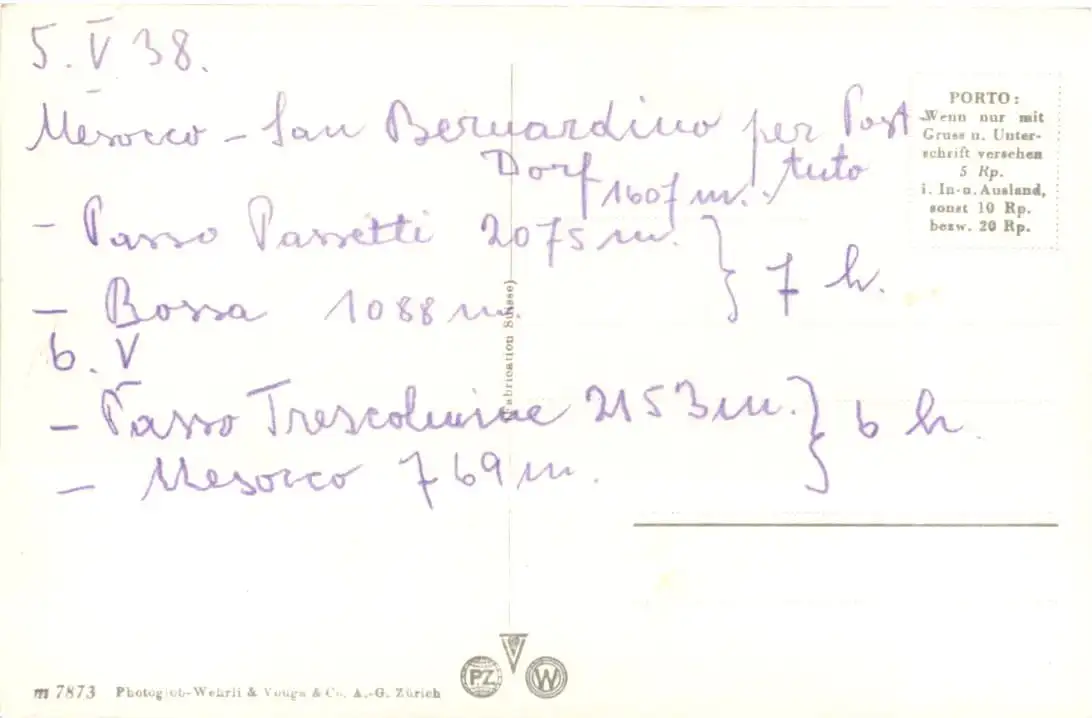 5. V 38.
Mesocco - San Bernardino per Post
Dorf 1607 m., tuto
- Passo Passetti 2075 m.
- Bossa 1088 m. } 7 h.
6. V
- Passo Trescolmine 2153 m.
- Mesocco 769 m. } 6 h.
PORTO:
Wenn nur mit
Gruss u. Unter-
schrift versehen
5 Rp.
i. In- u. Ausland,
sonst 10 Rp.
bezw. 20 Rp.
(Fabrication Suisse)
m 7873 Photoglob-Wehrli & Vouga & Co. A.-G. Zürich
PZ
V
W